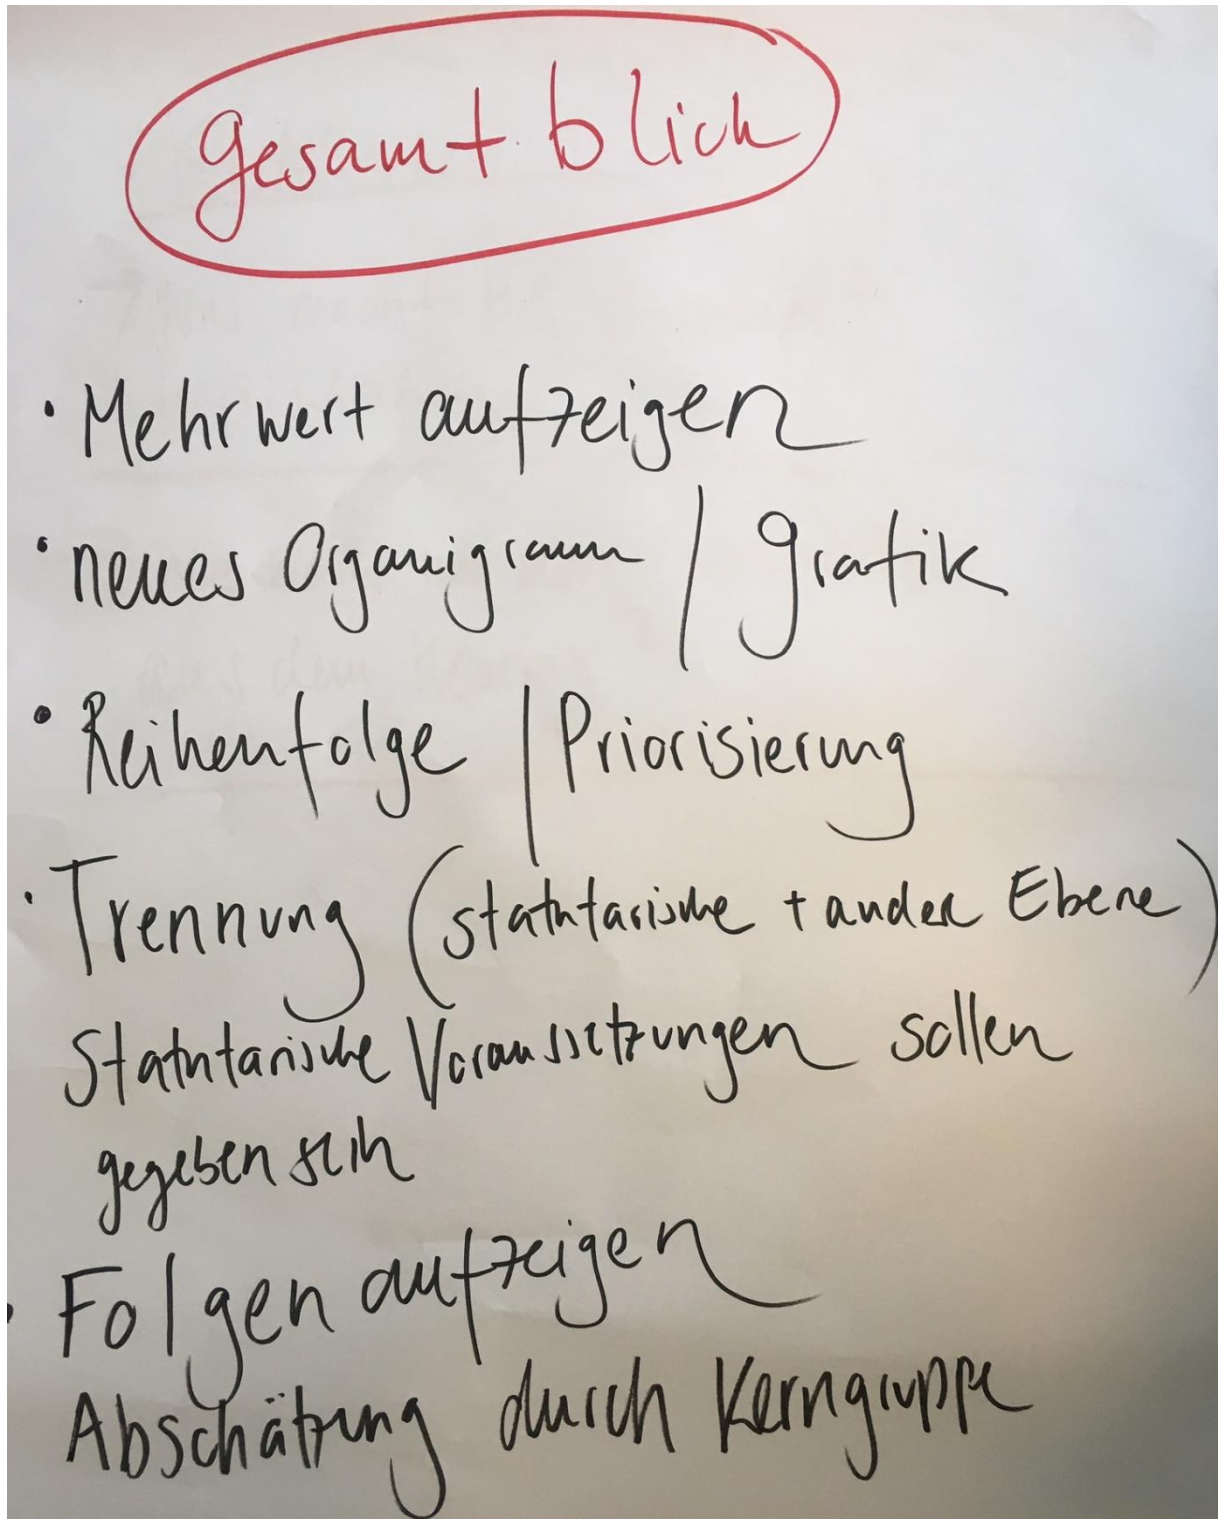 Gesamtblick
· Mehrwert aufzeigen
· neues Organigramm / Grafik
· Reihenfolge / Priorisierung
· Trennung (statutarische + andere Ebene)
Statutarische Voraussetzungen sollen
gegeben sein
· Folgen aufzeigen
Abschätzung durch Kerngruppe